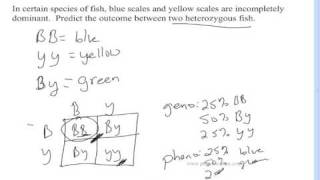 In certain species of fish, blue scales and yellow scales are incompletely
dominant. Predict the outcome between two heterozygous fish.
BB = blue
yy = yellow
By = green
B y
B BB By
y By yy
geno: 25% BB
50% By
25% yy
pheno: 25% blue
50% green
2